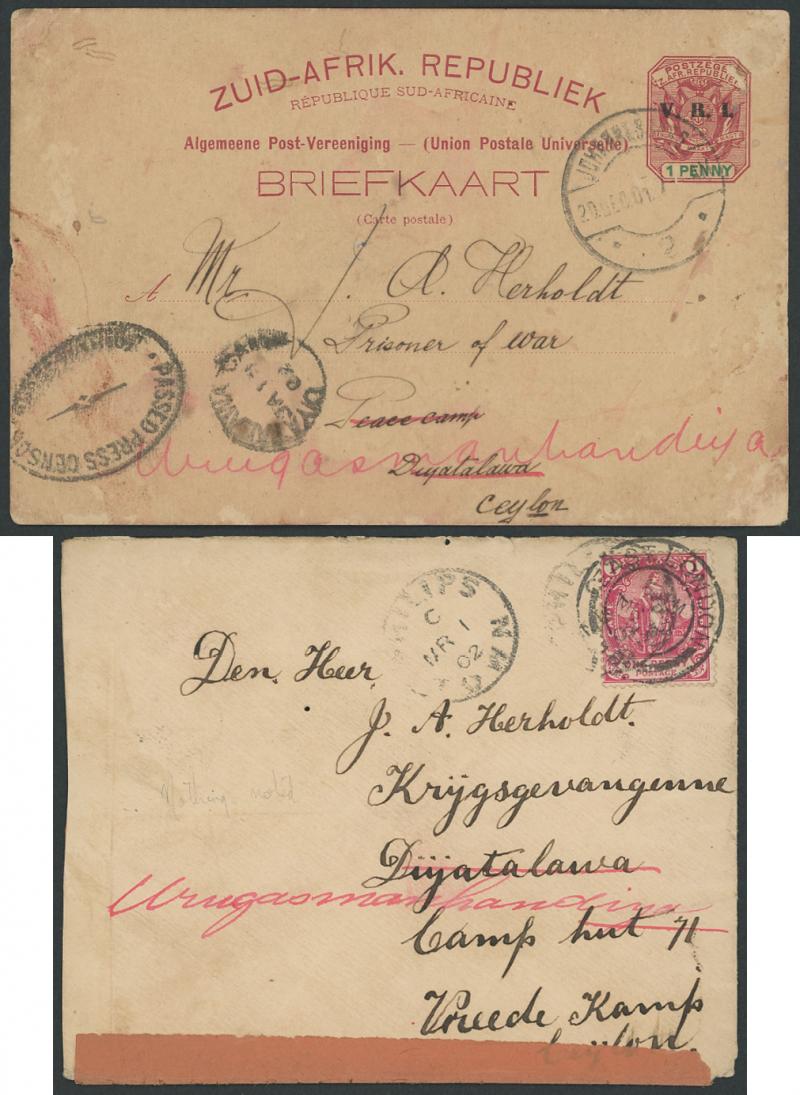 ZUID-AFRIK. REPUBLIEK
RÉPUBLIQUE SUD-AFRICAINE
Algemeene Post-Vereeniging — (Union Postale Universelle)
BRIEFKAART
(Carte postale)
POSTZEGEL
Z. AFR. REPUBLIEK
V. R. I.
1 PENNY
20 DEC 01
2
A Mr J. A. Herholdt
Prisoner of war
Peace camp
Urugasmanhandiya
Diyatalawa
Ceylon
PASSED PRESS CENSOR
DIYATALAWA CAMP
JA
02
PHILIPS
C
MR 1
02
ONE PENNY
POSTAGE
Den Heer,
J. A. Herholdt.
Krijgsgevangenne
Nothing noted
Diyatalawa
Urugasmanhandiya
Camp hut 71
Vreede Kamp
Ceijlon.